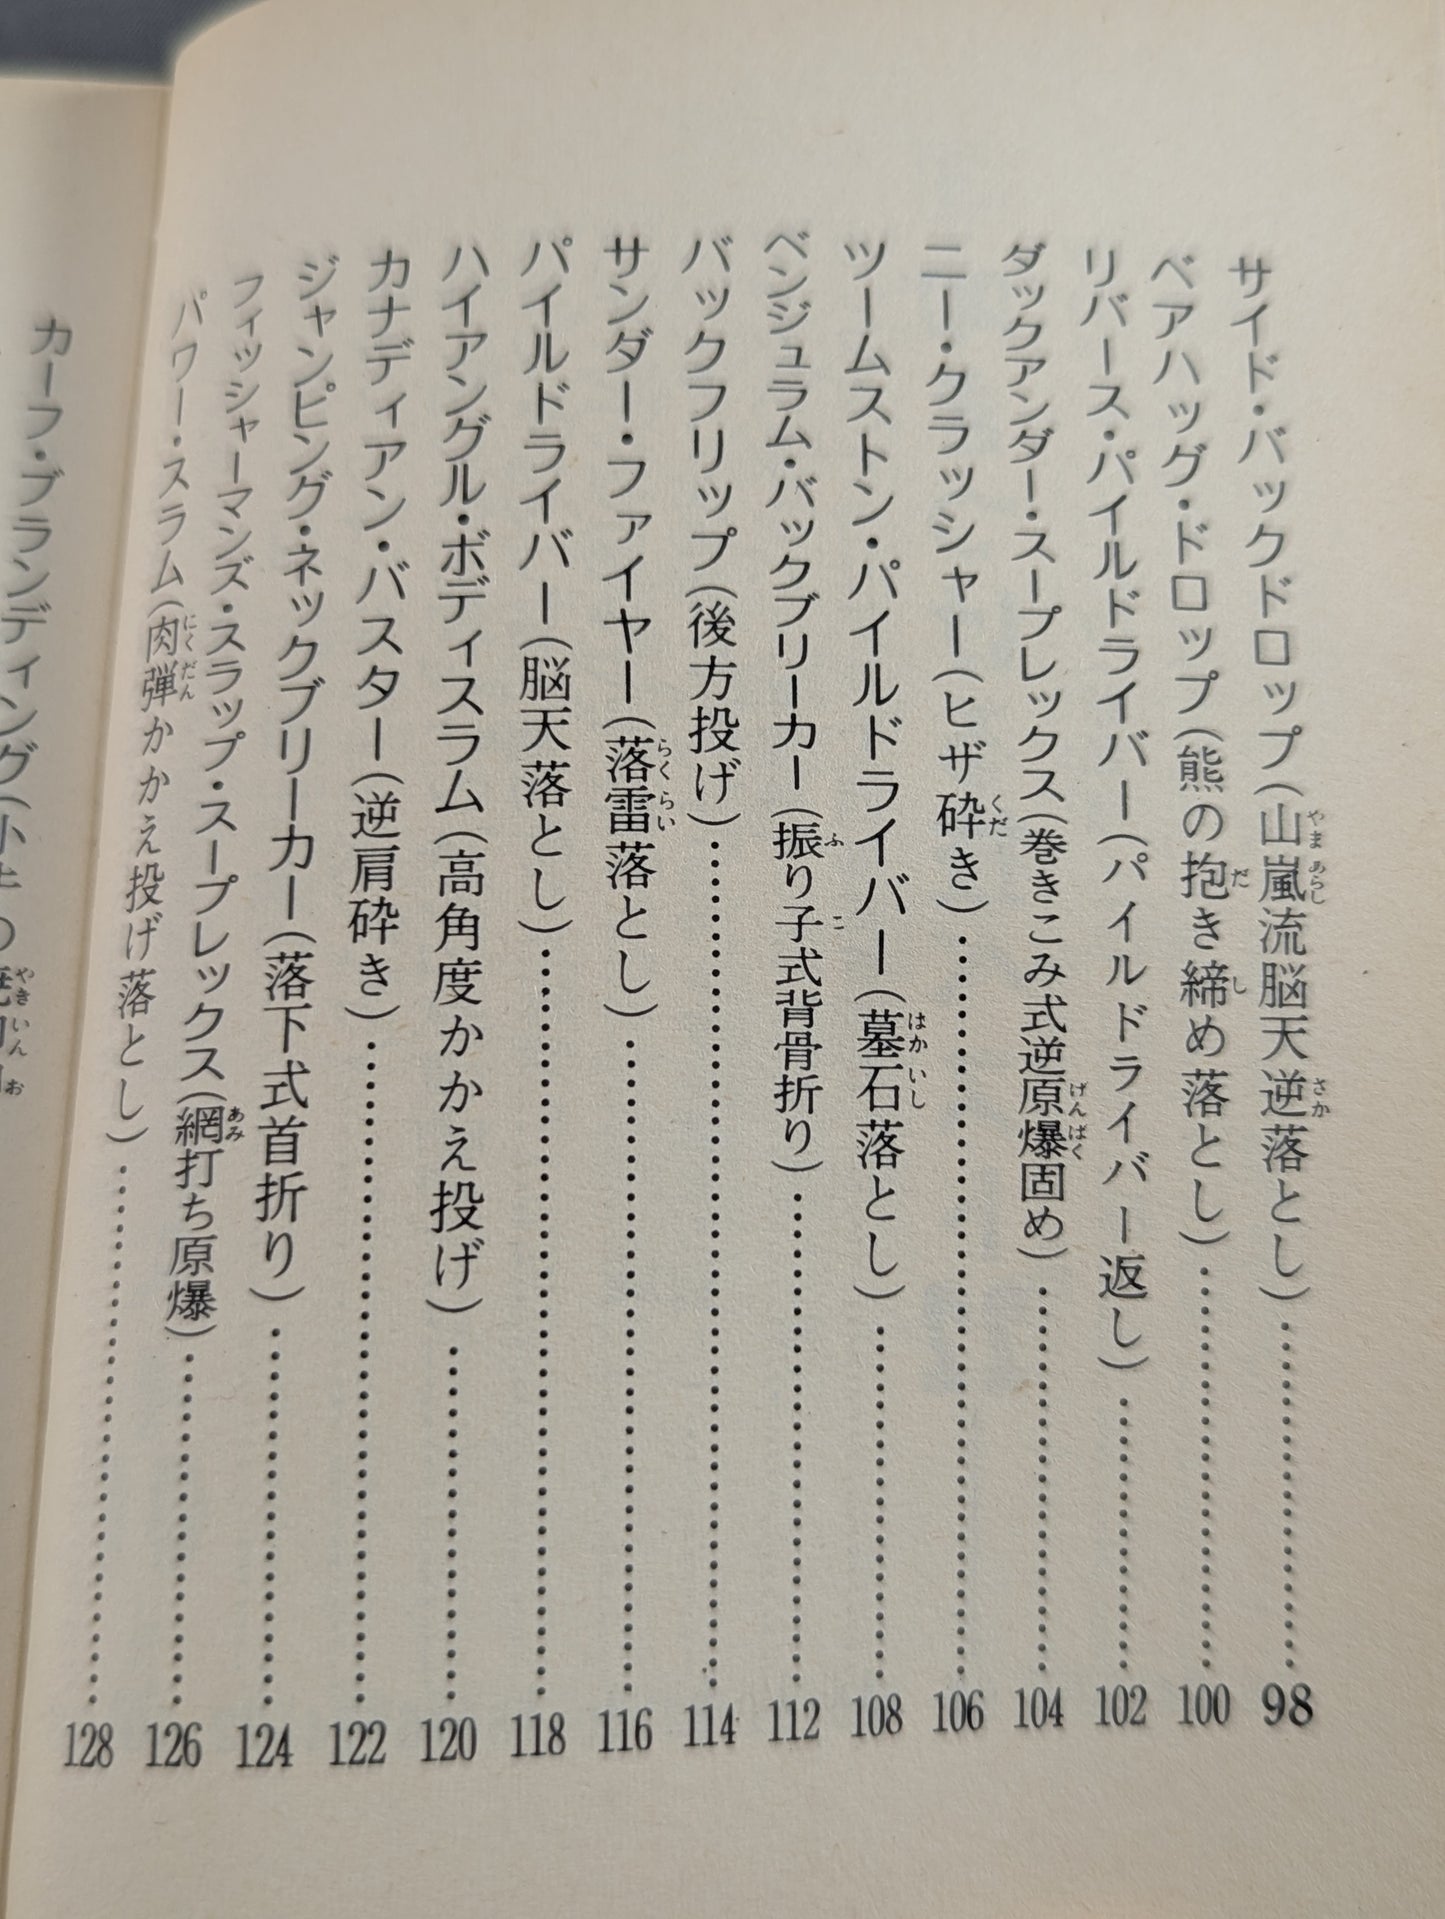 サイド・バックドロップ(山嵐流脳天逆落とし)…………98
ベアハッグ・ドロップ(熊の抱き締め落とし)…………100
リバース・パイルドライバー(パイルドライバー返し)…………102
ダックアンダー・スープレックス(巻きこみ式逆原爆固め)…………104
ニー・クラッシャー(ヒザ砕き)…………106
ツームストン・パイルドライバー(墓石落とし)…………108
ペンジュラム・バックブリーカー(振り子式背骨折り)…………112
バックフリップ(後方投げ)…………114
サンダー・ファイヤー(落雷落とし)…………116
パイルドライバー(脳天落とし)…………118
ハイアングル・ボディスラム(高角度かかえ投げ)…………120
カナディアン・バスター(逆肩砕き)…………122
ジャンピング・ネックブリーカー(落下式首折り)…………124
フィッシャーマンズ・スラップ・スープレックス(網打ち原爆)…………126
パワー・スラム(肉弾かかえ投げ落とし)…………128
カーフ・ブランディング(